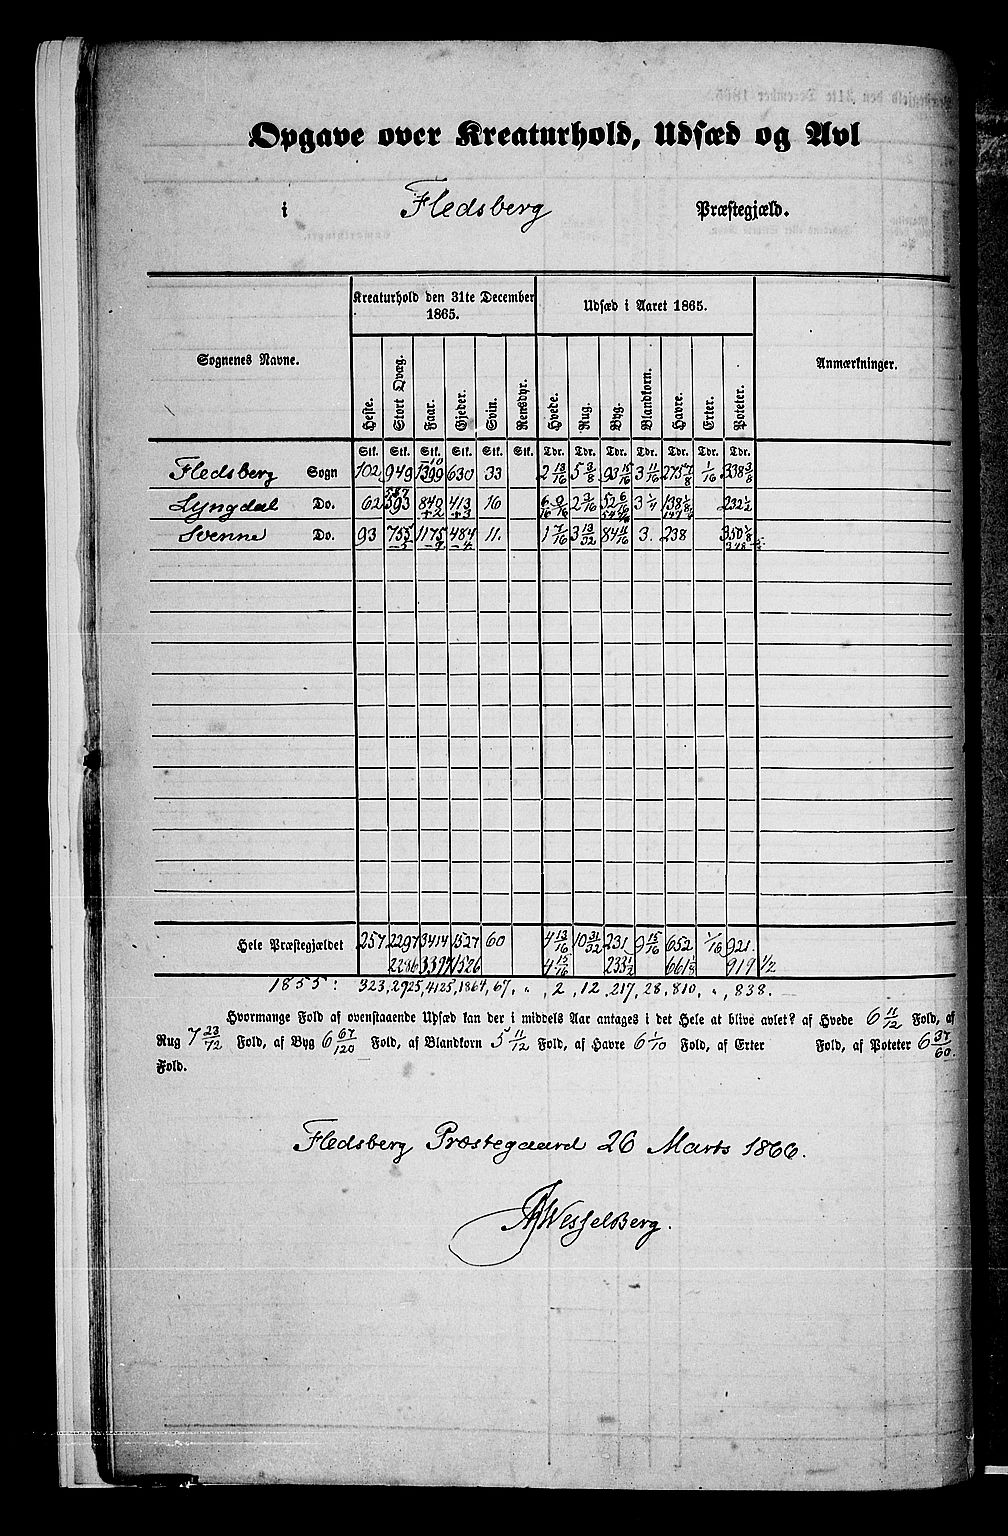 Opgave over Kreaturhold, Udsæd og Avl
i Flesberg Præstegjæld.
Sognenes Navne.
Kreaturhold den 31te December 1865.
Udsæd i Aaret 1865.
Anmærkninger.
Heste. Stort Qvæg. Faar. Gjeder. Svin. Rensdyr. Hvede. Rug. Byg. Blandkorn. Havre. Erter. Poteter.
Stk. Stk. Stk. Stk. Stk. Stk. Tdr. Tdr. Tdr. Tdr. Tdr. Tdr. Tdr.
Flesberg Sogn 102 949 1399 630 33 2 13/16 5 3/8 93 15/16 3 11/16 275 7/8 1/16 338 3/8
Lyngdal Do. 62 593 840 413 16 9/16 2 3/16 52 6/16 3 1/4 138 1/8 232 1/2
Svenne Do. 93 755 1175 484 11. 1 7/16 3 13/32 84 11/16 3. 238 350 1/8
Hele Præstegjældet 257 2297 3414 1527 60 4 13/16 10 31/32 231 9 15/16 652 1/16 921.
2286 3397 1526 4 15/16 233 1/2 661 1/8 919 1/2
1855: 323, 2925, 4125, 1864, 67, „ 2 12 217, 28, 810, „ 838.
Hvormange Fold af ovenstaaende Udsæd kan der i middels Aar antages i det Hele at blive avlet? af Hvede 6 11/12 Fold, af
Rug 7 23/72 Fold, af Byg 6 67/120 Fold, af Blandkorn 5 11/12 Fold, af Havre 6 1/10 Fold, af Erter Fold, af Poteter 6 37/60.
Fold.
Flesberg Præstegaard 26 Marts 1866.
Wesselberg.